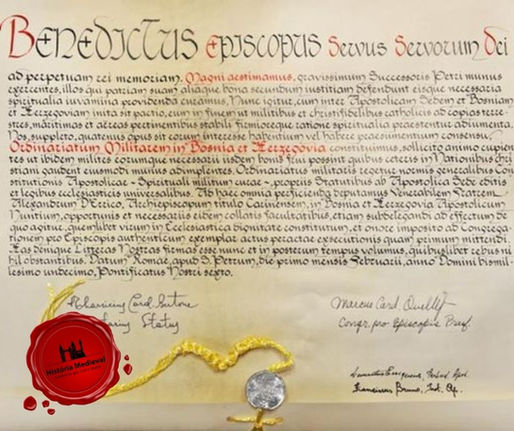 BENEDICTUS EPISCOPUS Servus Servorum Dei
ad perpetuam rei memoriam. Magni aestimamus, gravissimum Successoris Petri munus
exercentes, illos qui patriam suam aliaque bona secundum iustitiam defendunt eisque necessaria
spiritualia iuvamina providenda curamus. Nunc igitur, cum inter Apostolicam Sedem et Bosniam
et Herzegoviam inita sit pactio, cum in finem ut militibus et christifidelibus catholicis ad copias terre-
stres, maritimas et aëreas pertinentibus stabili firmoque ratione spiritualia praestentur adiumenta,
Nos, expleto, quatenus opus sit eorum interesse habentium vel habere praesumentium consensu,
Ordinariatum Militarem in Bosnia et Herzegovia constituimus, sollicito animo cupien
tes ut ibidem milites eorumque necessarii iisdem bonis frui possint quibus ceteris in Nationibus chri
stiani gaudent eiusmodi munus adimplentes. Ordinariatus militaris regetur normis generalibus Con
stitutionis Apostolicae "Spirituali militum curae", propriis Statutis ab Apostolica Sede editis
et legibus ecclesiasticis universalibus. Ad haec omnia perficienda deputamus Venerabilem Fratrem
Alexandrum D'Errico, Archiepiscopum titulo Carinensem, in Bosnia et Herzegovia Apostolicum
Nuntium, opportunis et necessariis eidem collatis facultatibus, etiam subdelegandi ad effectum de
quo agitur, quemlibet virum in Ecclesiastica dignitate constitutum, et onere imposito ad Congrega-
tionem pro Episcopis authenticum exemplar actus peractae exsecutionis quam primum mittendi.
Has denique Litteras Nostras firmas esse nunc et in posterum tempus volumus, quibuslibet rebus ni
hil obstantibus. Datum Romae, apud S. Petrum, die primo mensis Februarii, anno Domini bismil-
lesimo undecimo, Pontificatus Nostri sexto.
Tharcisius Card. Bertone
Marcus Card. Ouellet
Congr. pro Episcopis Praef.
Franciscus Bruno,
História Medieval